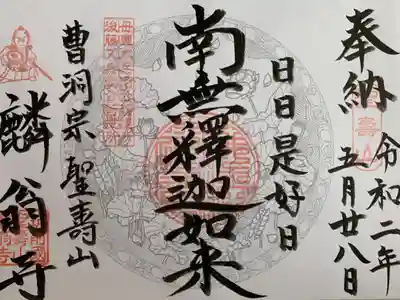 奉納 令和二年
五月廿八日
日日是好日
南無釋迦如来
曹洞宗 聖壽山
麟翁寺